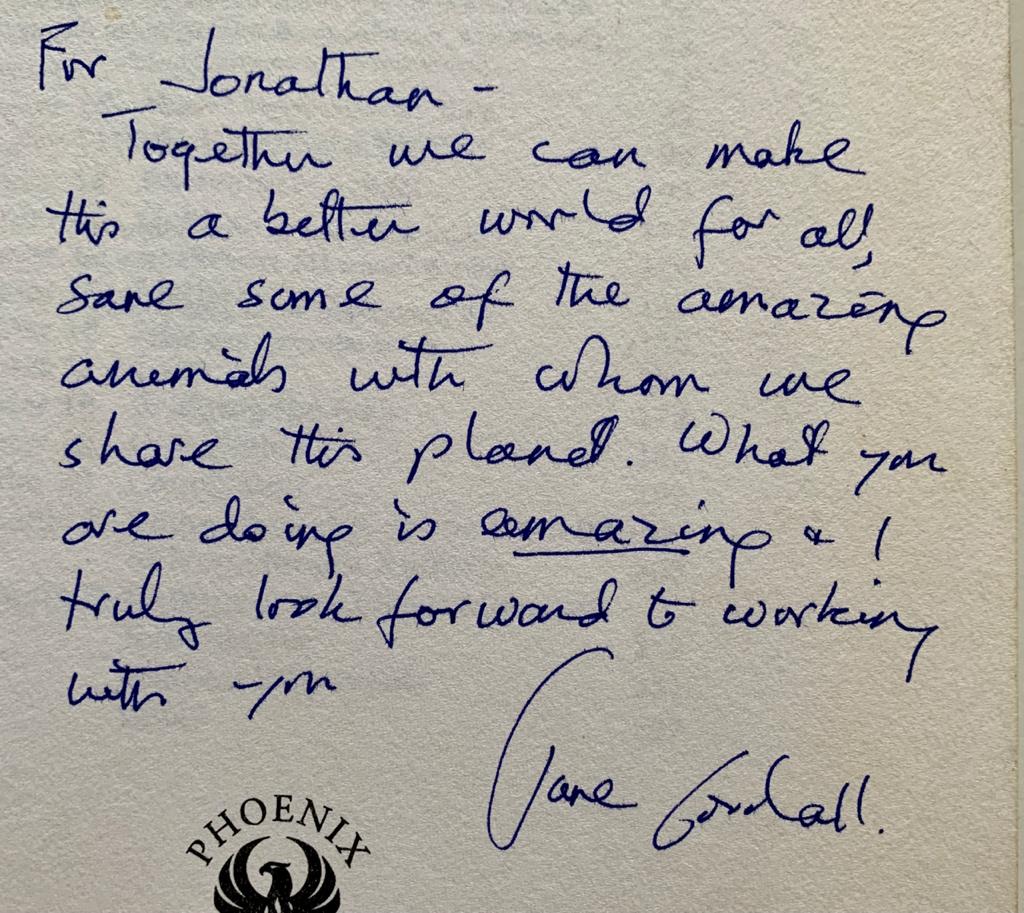 For Jonathan -
Together we can make
this a better world for all,
save some of the amazing
animals with whom we
share this planet. What you
are doing is amazing & I
truly look forward to working
with you
Jane Goodall.
PHOENIX